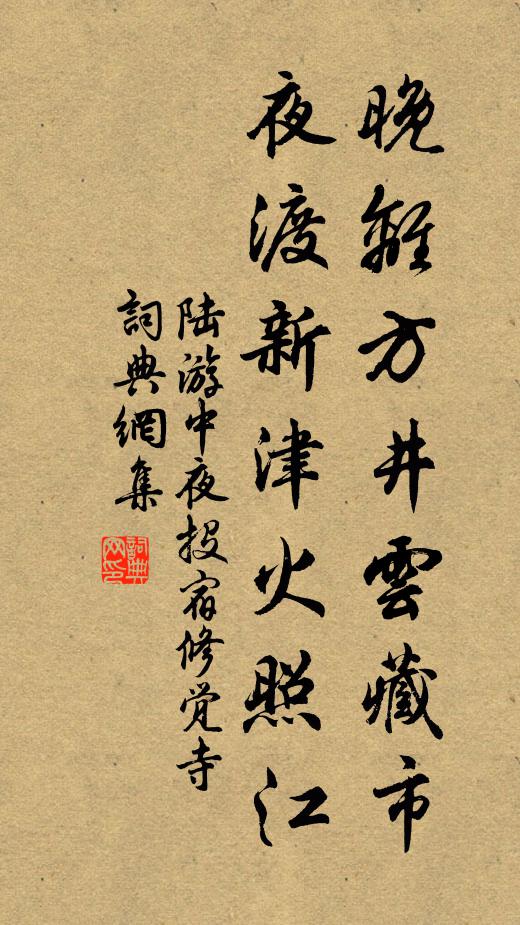 晚離方井雲藏市
夜渡新津火照江
陆游中夜投宿修觉寺
詞典網集
詞典
网印